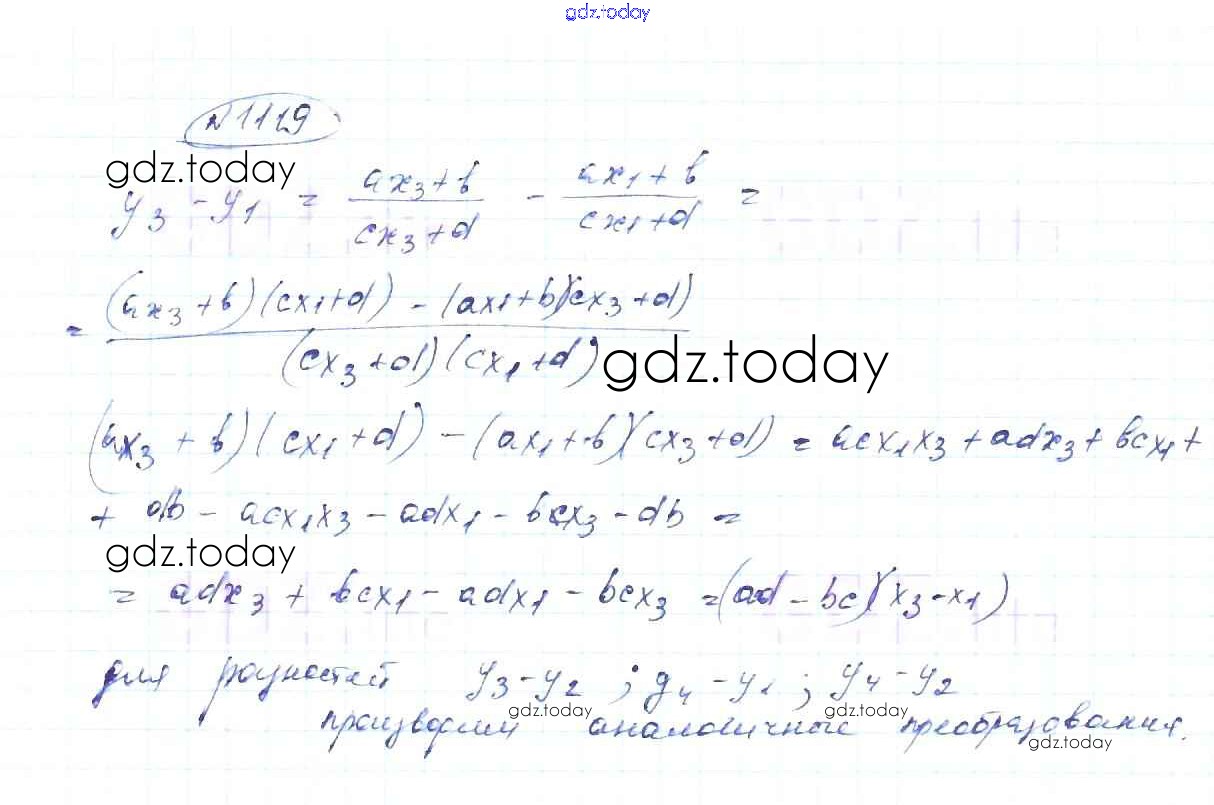 gdz.today
№1119
gdz.today
y₃ - y₁ = (ax₃+b)/(cx₃+d) - (ax₁+b)/(cx₁+d) =
= ((ax₃+b)(cx₁+d) - (ax₁+b)(cx₃+d))/((cx₃+d)(cx₁+d))
gdz.today
(ax₃+b)(cx₁+d) - (ax₁+b)(cx₃+d) = acx₁x₃ + adx₃ + bcx₁ +
+ db - acx₁x₃ - adx₁ - bcx₃ - db =
gdz.today
= adx₃ + bcx₁ - adx₁ - bcx₃ = (ad - bc)(x₃ - x₁)
для разностей y₃ - y₂ ; y₄ - y₁ ; y₄ - y₂
gdz.today gdz.today
производим аналогичные преобразования.
gdz.today